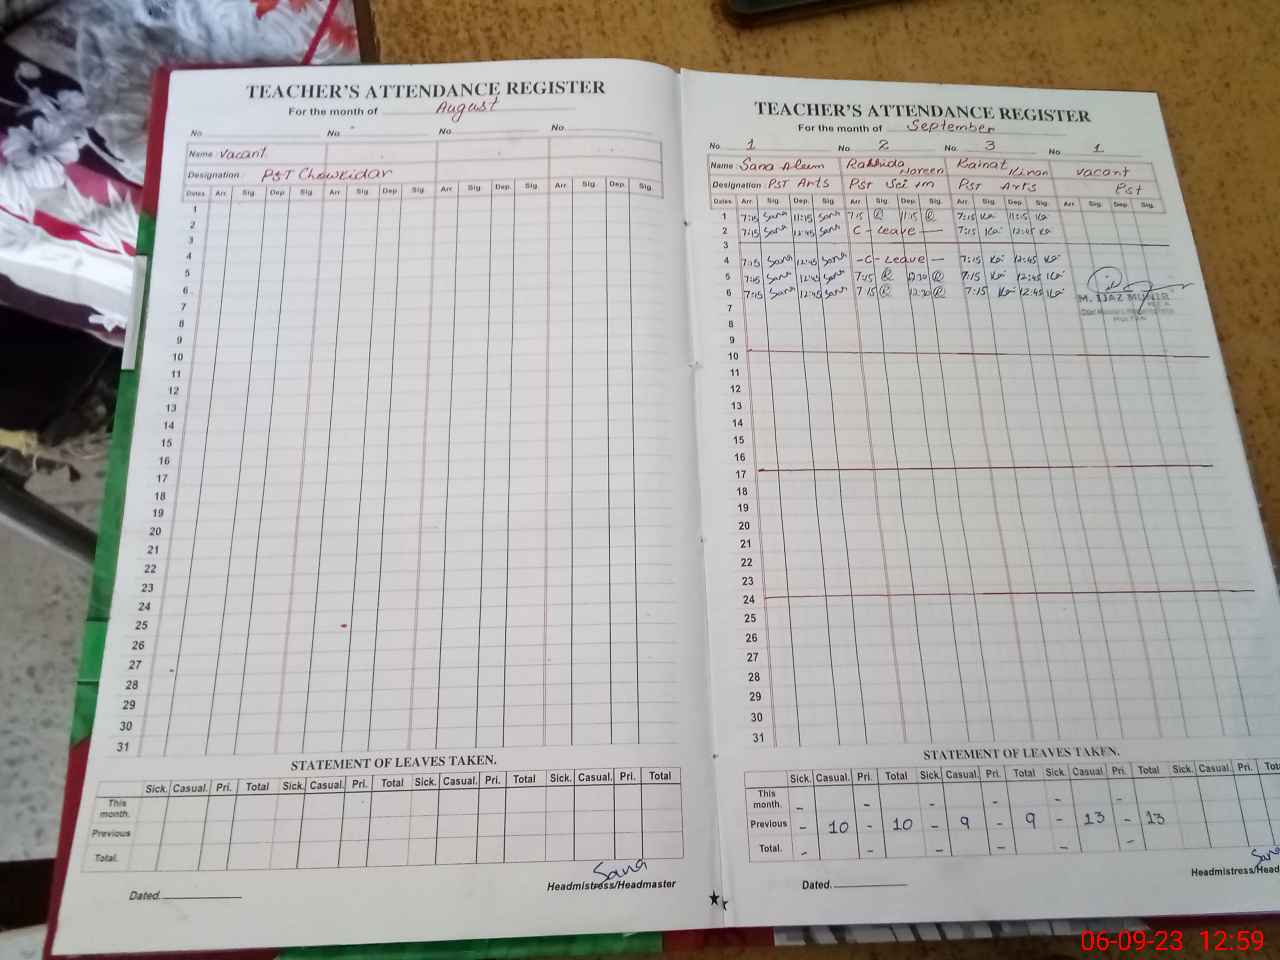 TEACHER'S ATTENDANCE REGISTER
For the month of August
No No No. No.
Name: Vacant
Designation: PST Chowkidar
Dates. Arr. Sig. Dep. Sig. Arr. Sig. Dep. Sig. Arr. Sig. Dep. Sig. Arr. Sig. Dep. Sig.
1
2
3
4
5
6
7
8
9
10
11
12
13
14
15
16
17
18
19
20
21
22
23
24
25
26
27
28
29
30
31
STATEMENT OF LEAVES TAKEN.
Sick. Casual. Pri. Total Sick. Casual. Pri. Total Sick. Casual. Pri. Total Sick. Casual. Pri. Total
This month.
Previous
Total.
Sana
Dated. Headmistress/Headmaster
TEACHER'S ATTENDANCE REGISTER
For the month of September
No. 1 No. 2 No. 3 No. 1
Name: Sana Aleem Rashida Noreen Kainat Kiran Vacant
Designation: PST Arts PST Sci PST Arts PST
Dates. Arr. Sig. Dep. Sig. Arr. Sig. Dep. Sig. Arr. Sig. Dep. Sig. Arr. Sig. Dep. Sig.
1 7:15 Sana 11:15 Sana 7:15 R 11:15 R 7:15 Kai 11:15 Kai
2 7:15 Sana 12:45 Sana C - Leave — 7:15 Kai 12:45 Kai
3
4 7:15 Sana 12:45 Sana - C - Leave — 7:15 Kai 12:45 Kai
5 7:15 Sana 12:45 Sana 7:15 R 12:30 R 7:15 Kai 12:45 Kai
6 7:15 Sana 12:45 Sana 7:15 R 12:30 R 7:15 Kai 12:45 Kai
M. IJAZ MUNIR
MULTAN
7
8
9
10
11
12
13
14
15
16
17
18
19
20
21
22
23
24
25
26
27
28
29
30
31
STATEMENT OF LEAVES TAKEN.
Sick. Casual. Pri. Total Sick. Casual. Pri. Total Sick. Casual. Pri. Total Sick. Casual. Pri. Tota
This month. - - - - - -
Previous - 10 - 10 - 9 - 9 - 13 - 13
Total. - - - - - -
Sana
Dated. Headmistress/Head
06-09-23 12:59